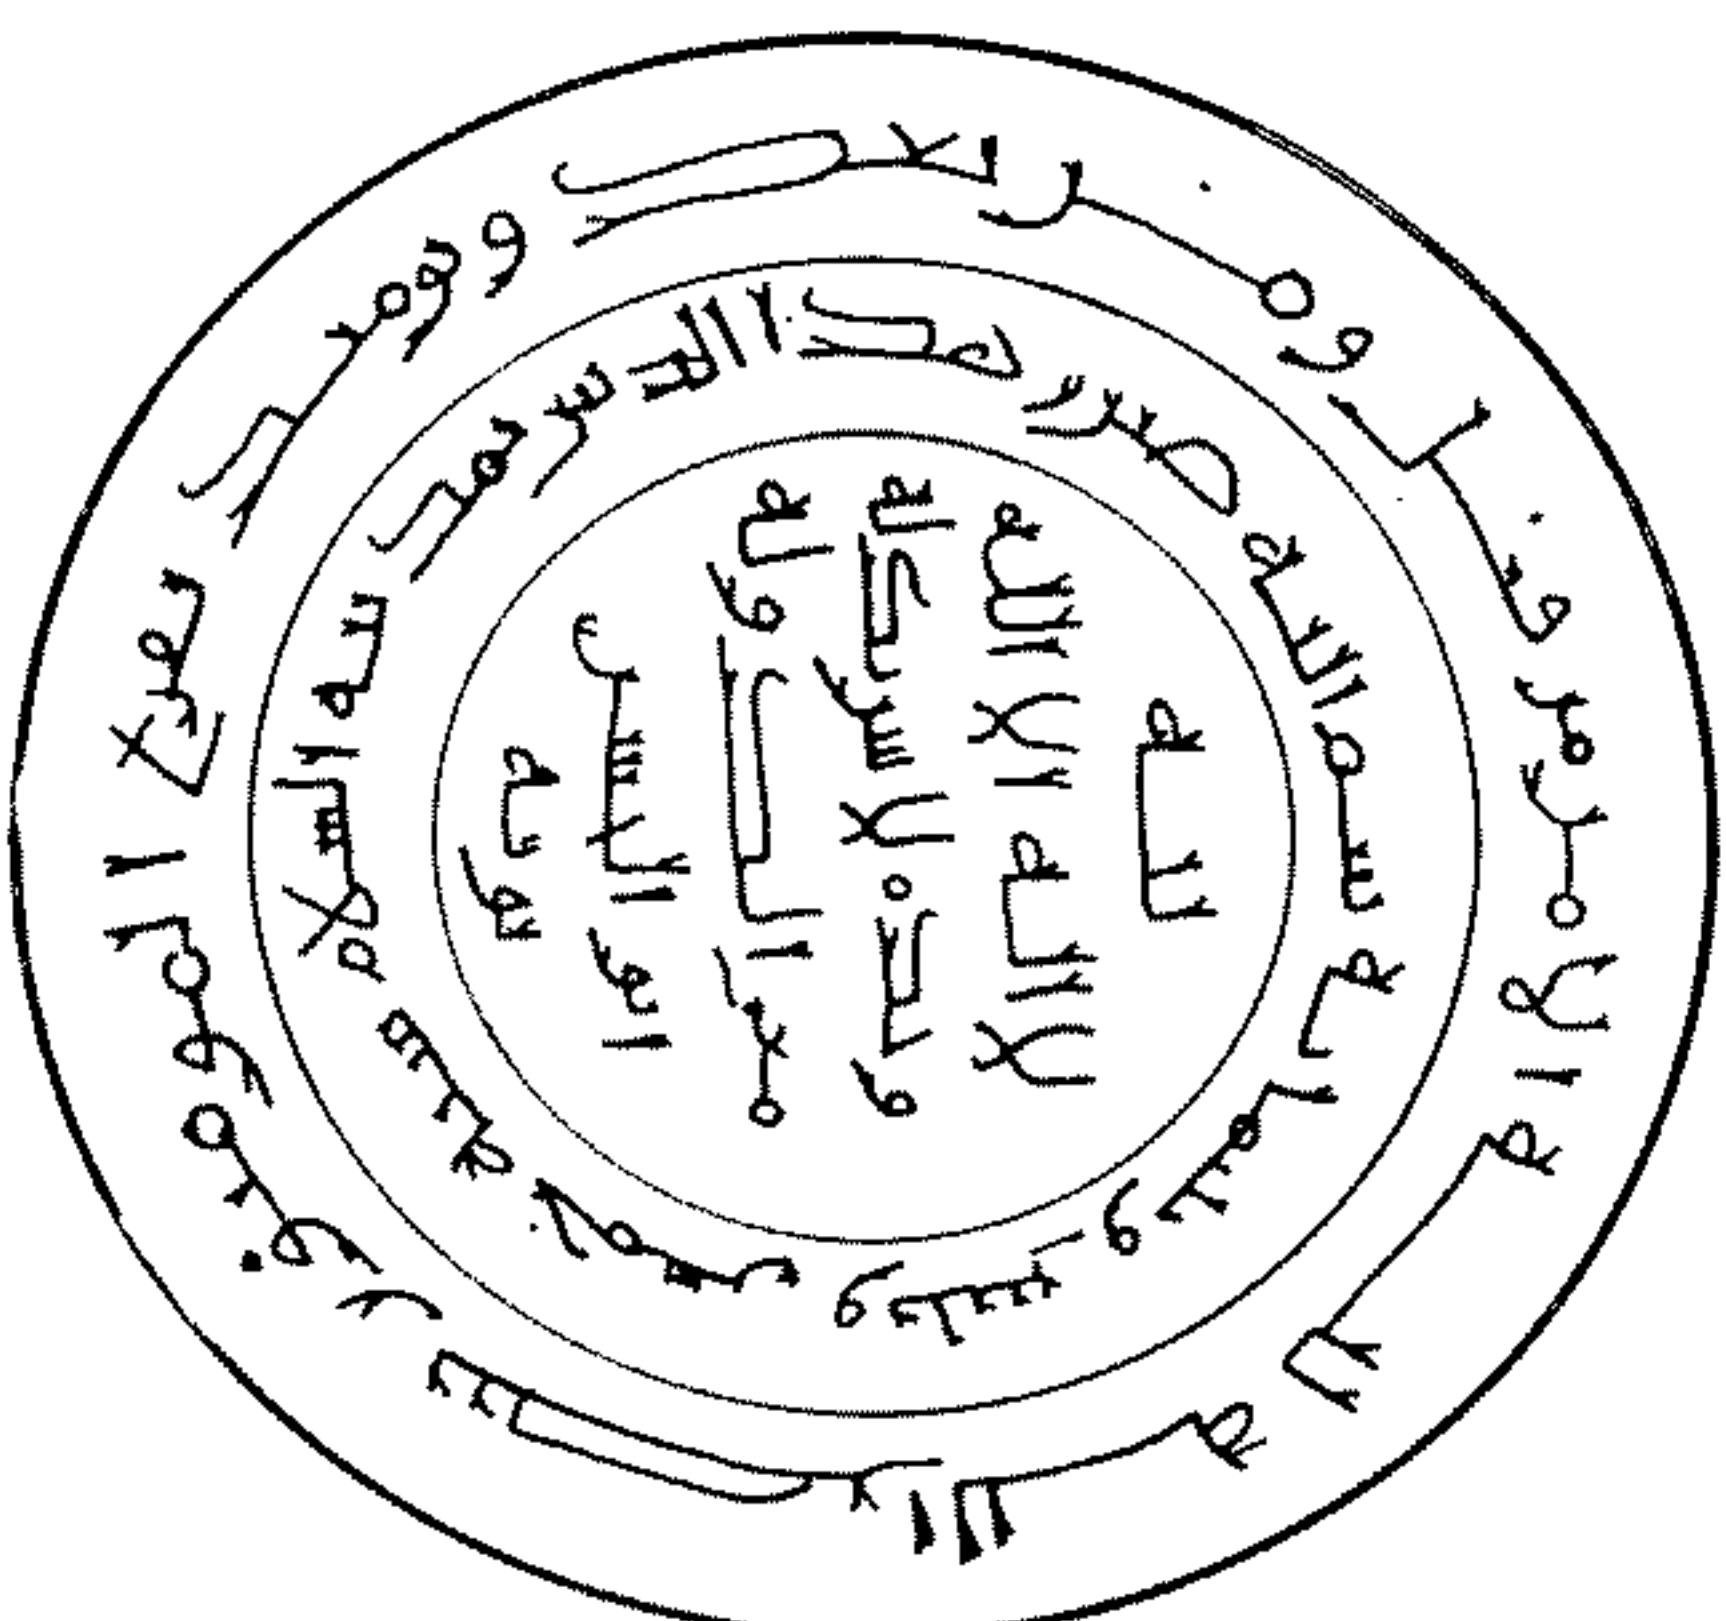 لله
لا اله الا الله
وحده لا شريك له
الدولة
ابو
بويه
بسم الله ضرب هذا الدينر بمدينة السلم سنة خمس وستين وثلثمائة
لله الامر من قبل ومن بعد ويومئذ يفرح المومنون بنصر الله